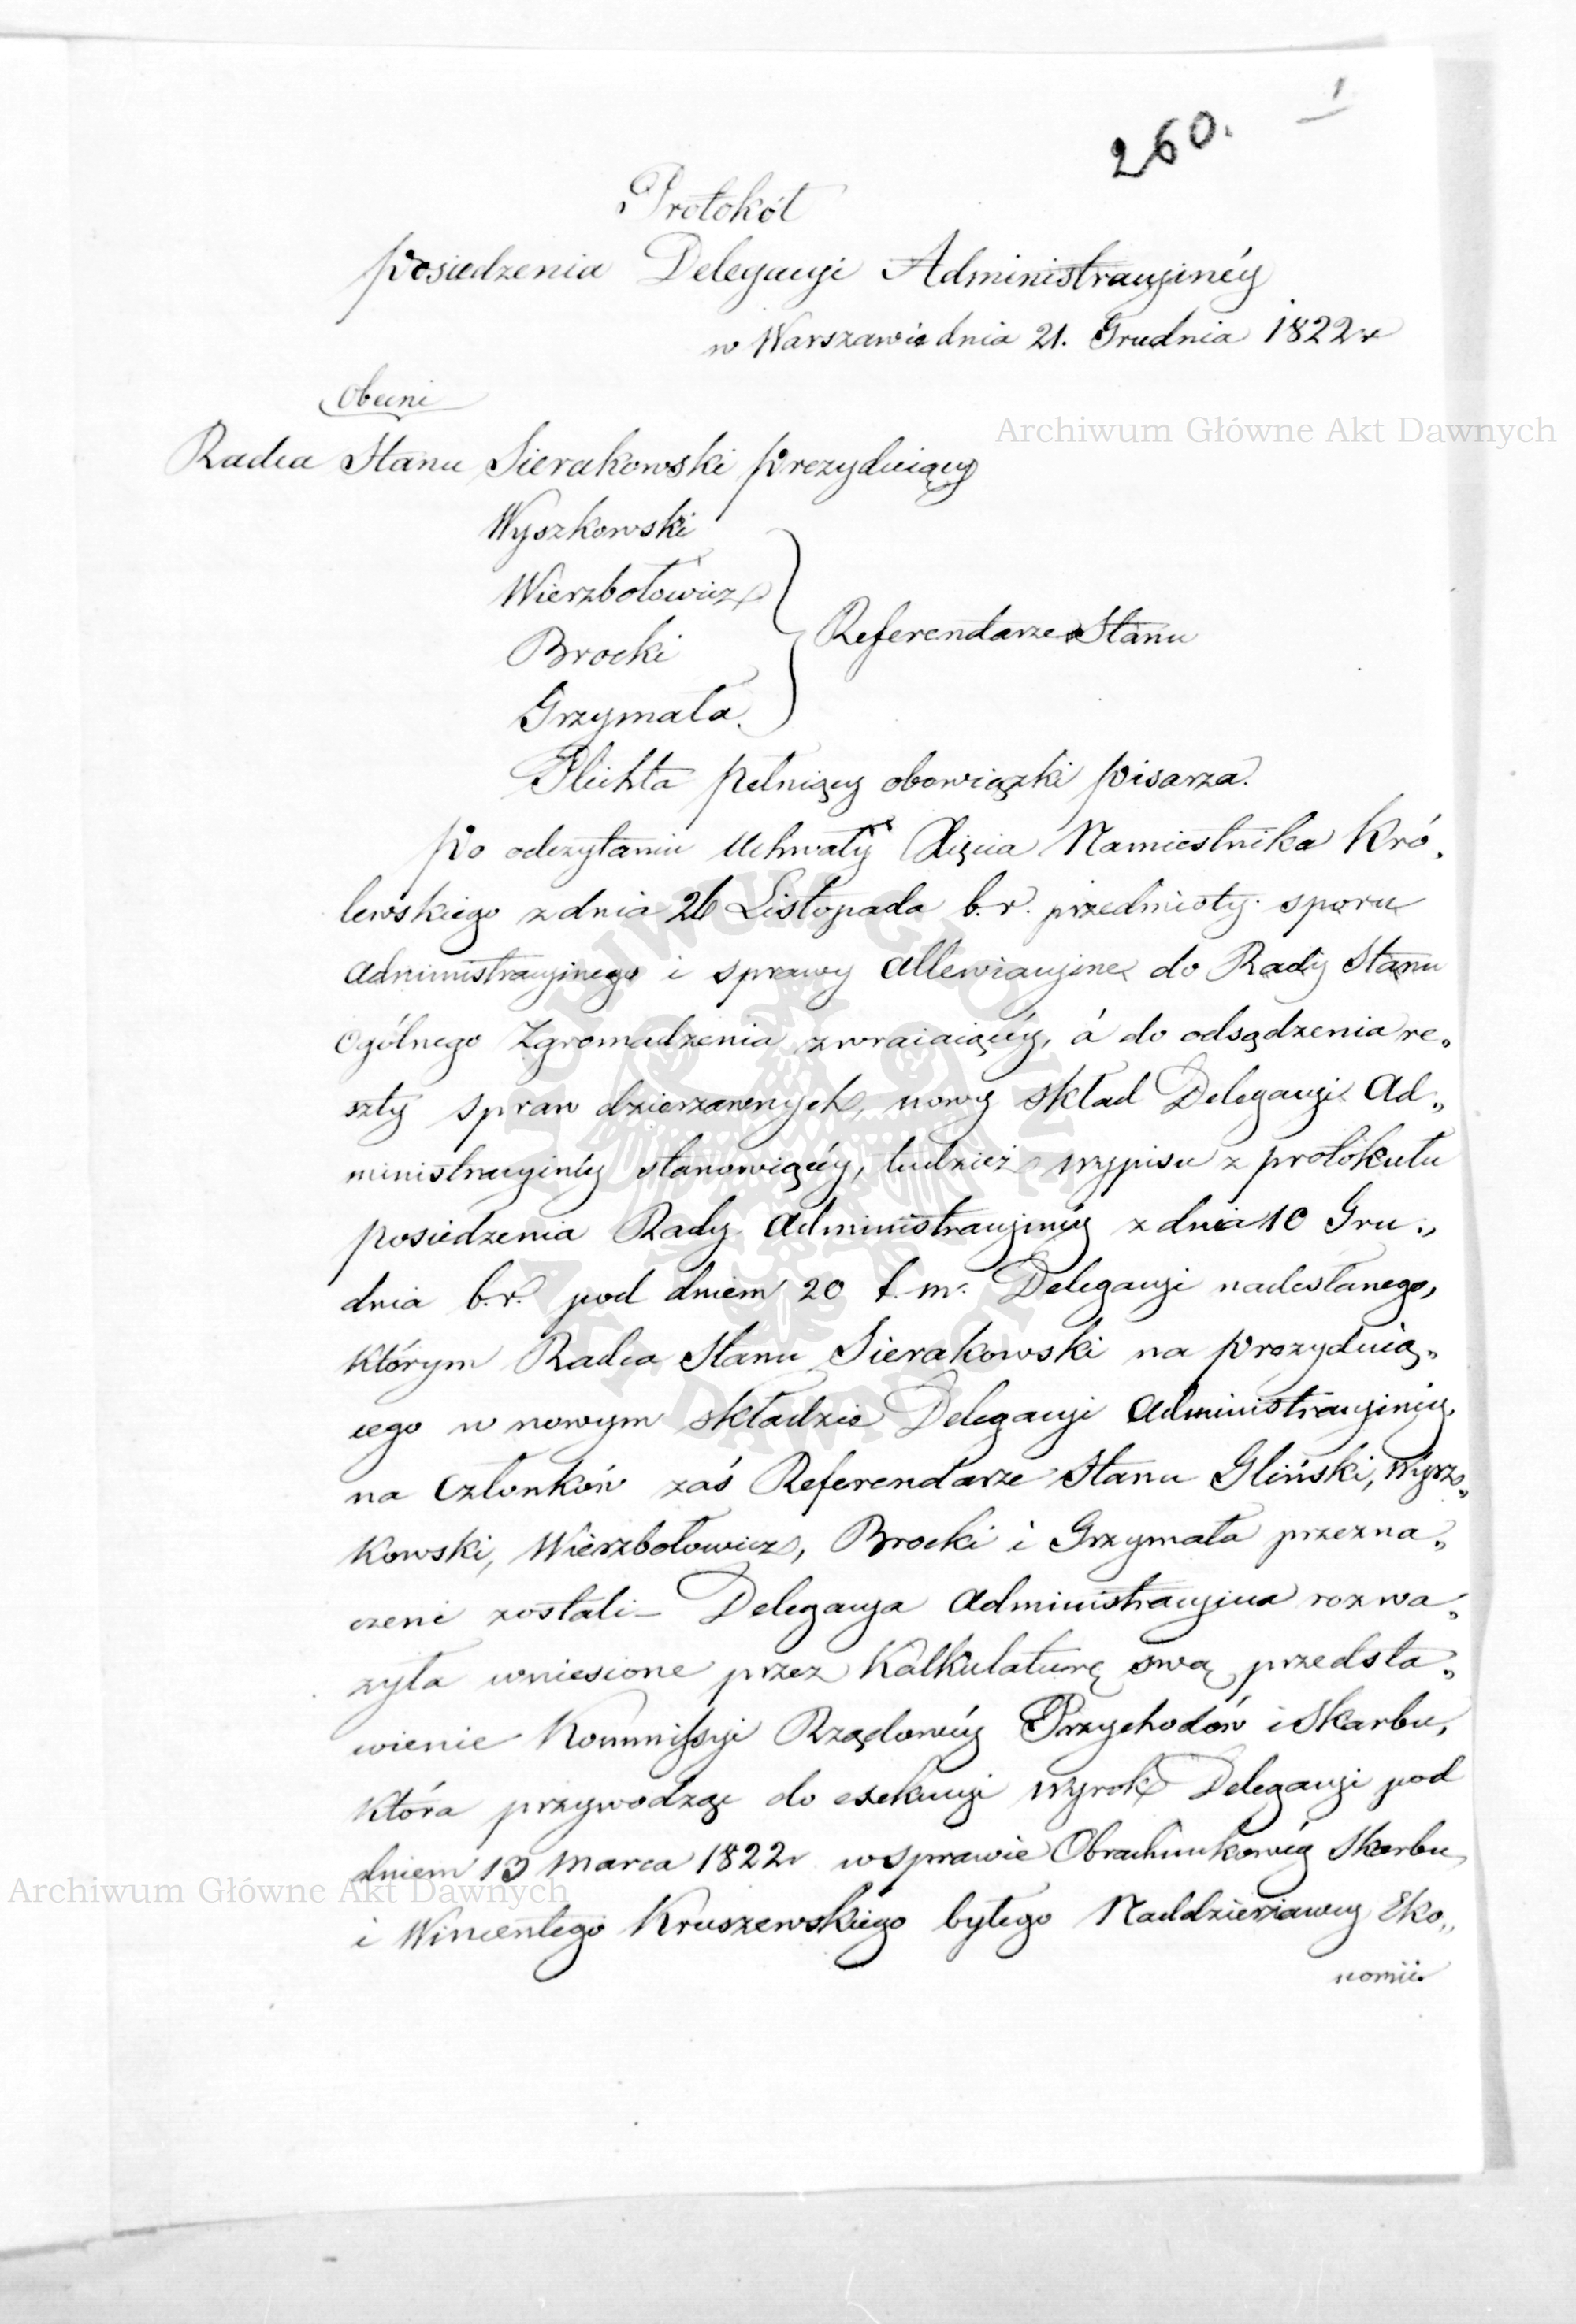 1
260.
Protokół
posiedzenia Delegacyi Administracyinéy
w Warszawie dnia 21. Grudnia 1822 r
Obecni
Archiwum Główne Akt Dawnych
Radca Stanu Sierakowski prezyduiący
Wyszkowski
Wierzbołowicz
Brocki
Referendarze Stanu
Grzymała.
Plichta pełniący obowiązki pisarza.
Po odczytaniu Uchwały Xięcia Namiestnika Kró„
lewskiego z dnia 26 Listopada b.r. przedmioty sporu
administracyinego i sprawy allewiacyine do Rady Stanu
Ogólnego Zgromadzenia zwracaiącéy, á do odsądzenia re„
szty spraw dzierzawnych, nowy skład Delegacyi Ad„
ministracyinéy stanowiącéy, tudzież wypisu z protokułu
posiedzenia Rady Administracyinéy z dnia 10 Gru„
dnia b.r. pod dniem 20 t.m. Delegacyi nadesłanego,
którym Radca Stanu Sierakowski na prezyduią„
cego w nowym składzie Delegacyi Administracyinéy
na Członków zaś Referendarze Stanu Gliński, Wysz„
kowski, Wierzbołowicz, Brocki i Grzymała przezna„
czeni zostali – Delegacya Administracyina rozwa„
żyła wniesione przez Kalkulaturę swą przedsta„
wienie Kommissyi Rządowéy Przychodów i Skarbu,
która przywodząc do exekucyi wyrok Delegacyi pod
dniem 13 Marca 1822 r w sprawie Obrachunkowéy Skarbu
Archiwum Główne Akt Dawnych
i Wincentego Kruszewskiego byłego Naddzierżawcy Eko„
nomii